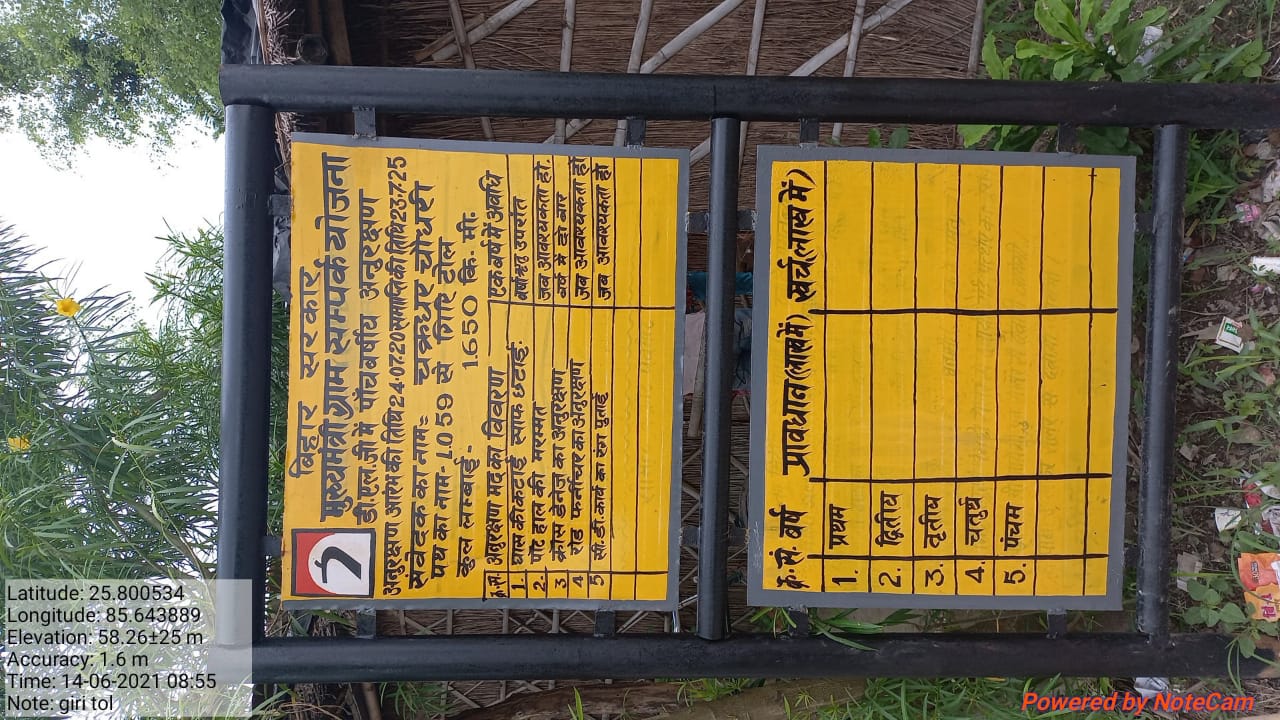 बिहार सरकार
मुख्यमंत्री ग्राम सम्पर्क योजना
डी.एल.पी में पाँचवर्षीय अनुरक्षण
अनुरक्षण आरंभ की तिथि 24.07.20 समाप्ति की तिथि 23.7.25
संवेदक का नाम:- चक्रधर चौधरी
पथ का नाम- L059 से गिरि टोल
कुल लम्बाई- 1.650 कि. मी.
क्र.सं. अनुरक्षण मद का विवरण एक वर्ष में अवधि
1. घास की कटाई साफ छटाई: वर्षाऋतु उपरांत
2. पॉट हॉल की मरम्मत जब आवश्यकता हो.
3 क्रॉस ड्रेनेज का अनुरक्षण वर्ष में दो बार
4 रोड फर्नीचर का अनुरक्षण जब आवश्यकता हो
5 सी.डी. कार्य का रंग पुताई जब आवश्यकता हो
क्र.सं. वर्ष प्रावधान (लाख में) खर्च (लाख में)
1. प्रथम
2. द्वितीय
3. तृतीय
4. चतुर्थ
5. पंचम
Latitude: 25.800534
Longitude: 85.643889
Elevation: 58.26±25 m
Accuracy: 1.6 m
Time: 14-06-2021 08:55
Note: giri tol
Powered by NoteCam